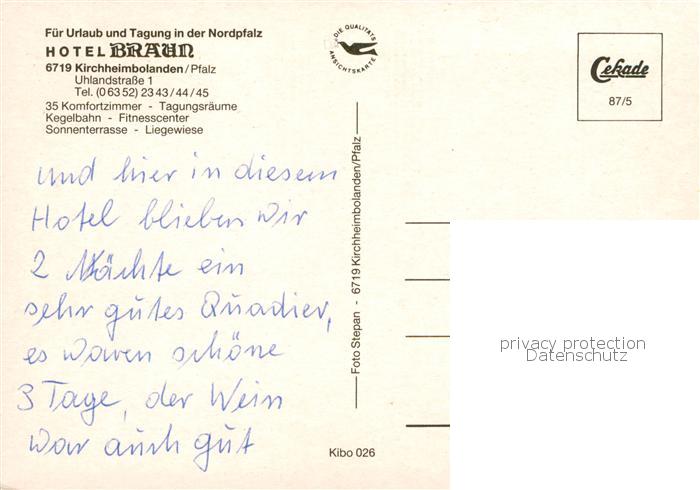 Für Urlaub und Tagung in der Nordpfalz
HOTEL BRAUN
6719 Kirchheimbolanden/Pfalz
Uhlandstraße 1
Tel. (0 63 52) 23 43/44/45
35 Komfortzimmer - Tagungsräume
Kegelbahn - Fitnesscenter
Sonnenterrasse - Liegewiese
und hier in diesem
Hotel blieben wir
2 Nächte ein
sehr gutes Quadier,
es waren schöne
3 Tage, der Wein
war auch gut
DIE QUALITÄTS
ANSICHTSKARTE
Foto Stepan - 6719 Kirchheimbolanden/Pfalz
Kibo 026
Cekade
87/5
privacy protection
Datenschutz